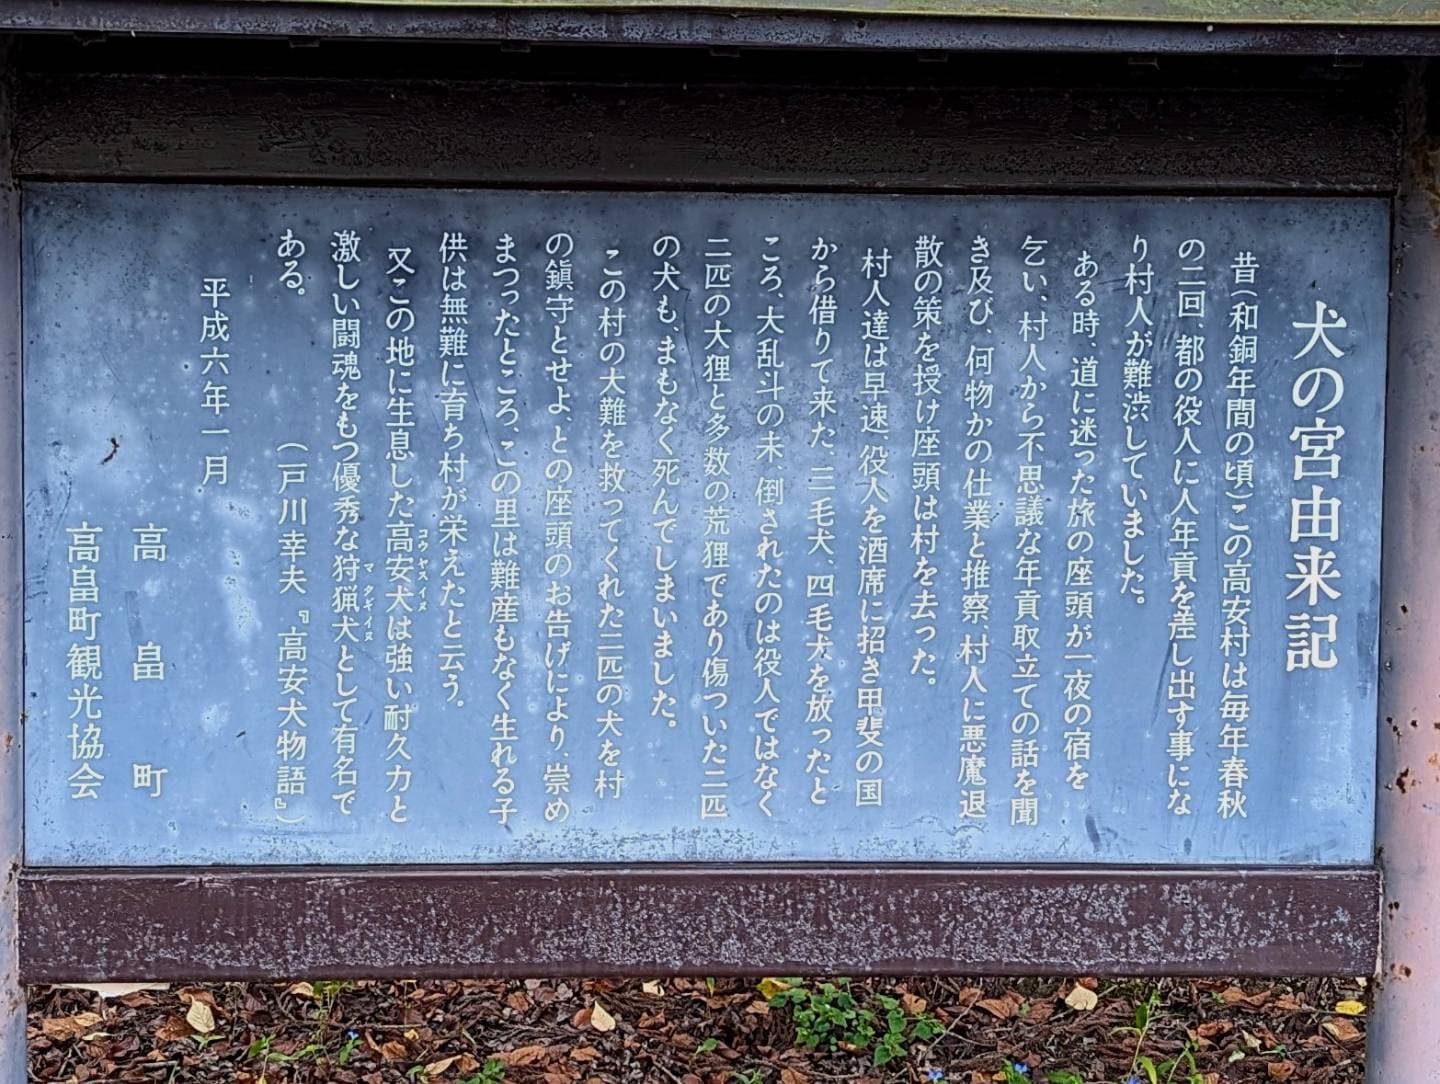 犬の宮由来記
昔(和銅年間の頃)この高安村は毎年春秋
の二回、都の役人に人年貢を差し出す事にな
り村人が難渋していました。
ある時、道に迷った旅の座頭が一夜の宿を
乞い、村人から不思議な年貢取立ての話を聞
き及び、何物かの仕業と推察、村人に悪魔退
散の策を授け座頭は村を去った。
村人達は早速、役人を酒席に招き甲斐の国
から借りて来た、三毛犬、四毛犬を放ったと
ころ、大乱斗の末、倒されたのは役人ではなく
二匹の大狸と多数の荒狸であり傷ついた二匹
の犬も、まもなく死んでしまいました。
この村の大難を救ってくれた二匹の犬を村
の鎮守とせよ、との座頭のお告げにより、崇め
まつったところ、この里は難産もなく生れる子
供は無難に育ち村が栄えたと云う。
又この地に生息した高安犬は強い耐久力と
コウヤスイヌ
激しい闘魂をもつ優秀な狩猟犬として有名で
マタギイヌ
ある。 (戸川幸夫『高安犬物語』)
平成六年一月
高畠町
高畠町観光協会